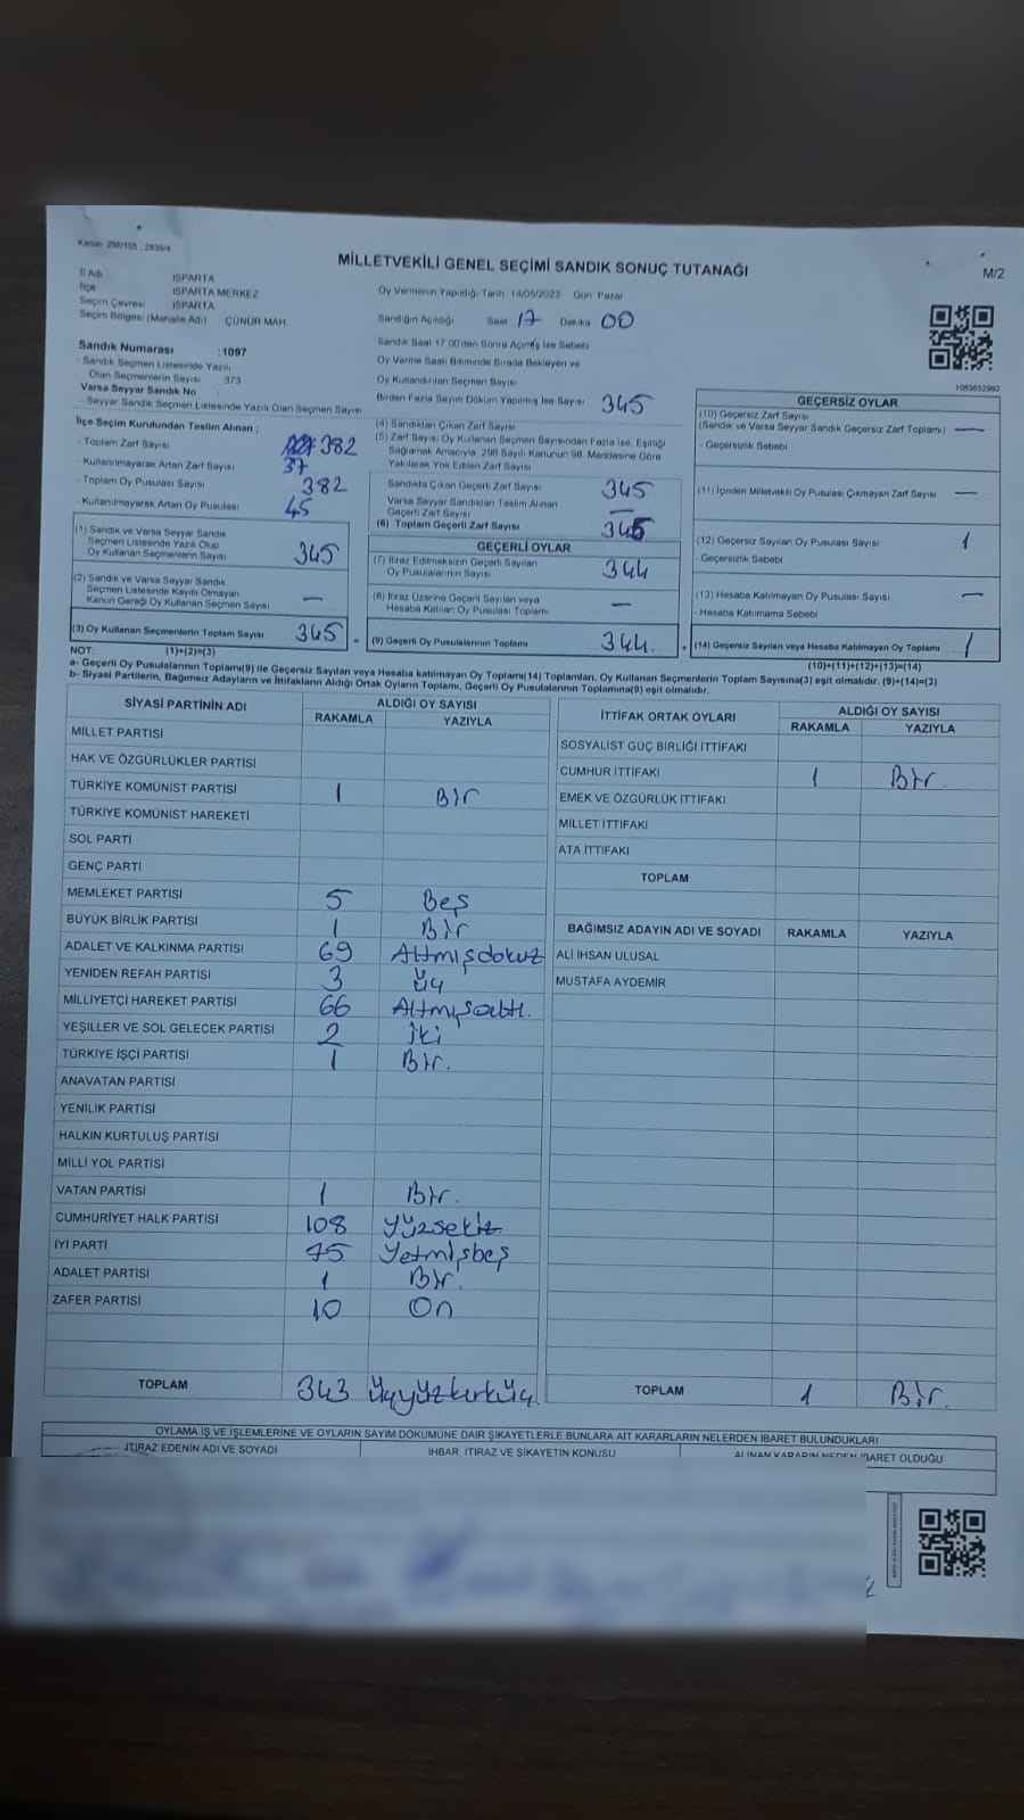 MİLLETVEKİLİ GENEL SEÇİMİ SANDIK SONUÇ TUTANAĞI
M/2
İl Adı : ISPARTA
İlçe : ISPARTA MERKEZ
Seçim Çevresi : ISPARTA
Seçim Bölgesi (Mahalle Adı) : ÇÜNÜR MAH.
Oy Vermenin Yapıldığı Tarih: 14/05/2023 Gün: Pazar
Sandığın Açıldığı Saat 17 Dakika 00
Sandık Numarası : 1097
Sandık Seçmen Listesinde Yazılı
Olan Seçmenlerin Sayısı : 373
Varsa Seyyar Sandık No
- Seyyar Sandık Seçmen Listesinde Yazılı Olan Seçmen Sayısı
Sandık Saat 17.00'den Sonra Açılmış İse Sebebi
Oy Verme Saati Bitiminde Sırada Bekleyen ve
Oy Kullandırılan Seçmen Sayısı
Birden Fazla Sayım Döküm Yapılmış İse Sayısı 345
İlçe Seçim Kurulundan Teslim Alınan ;
- Toplam Zarf Sayısı 382
- Kullanılmayarak Artan Zarf Sayısı 37
- Toplam Oy Pusulası Sayısı 382
- Kullanılmayarak Artan Oy Pusulası 45
(1) Sandık ve Varsa Seyyar Sandık
Seçmen Listesinde Yazılı Olup
Oy Kullanan Seçmenlerin Sayısı 345
(2) Sandık ve Varsa Seyyar Sandık
Seçmen Listesinde Kayıtlı Olmayan
Kanun Gereği Oy Kullanan Seçmen Sayısı —
(3) Oy Kullanan Seçmenlerin Toplam Sayısı 345
(4) Sandıktan Çıkan Zarf Sayısı
(5) Zarf Sayısı Oy Kullanan Seçmen Sayısından Fazla İse, Eşitliği
Sağlamak Amacıyla, 298 Sayılı Kanunun 98. Maddesine Göre
Yakılarak Yok Edilen Zarf Sayısı
Sandıkta Çıkan Geçerli Zarf Sayısı 345
Varsa Seyyar Sandıktan Teslim Alınan
Geçerli Zarf Sayısı —
(6) Toplam Geçerli Zarf Sayısı 345
GEÇERLİ OYLAR
(7) İtiraz Edilmeksizin Geçerli Sayılan
Oy Pusulalarının Sayısı 344
(8) İtiraz Üzerine Geçerli Sayılan veya
Hesaba Katılan Oy Pusulası Toplamı —
(9) Geçerli Oy Pusulalarının Toplamı 344
GEÇERSİZ OYLAR
(10) Geçersiz Zarf Sayısı
(Sandık ve Varsa Seyyar Sandık Geçersiz Zarf Toplamı) —
- Geçersizlik Sebebi
(11) İçinden Milletvekili Oy Pusulası Çıkmayan Zarf Sayısı —
(12) Geçersiz Sayılan Oy Pusulası Sayısı 1
- Geçersizlik Sebebi
(13) Hesaba Katılmayan Oy Pusulası Sayısı —
- Hesaba Katılmama Sebebi
(14) Geçersiz Sayılan veya Hesaba Katılmayan Oy Toplamı 1
NOT: (1)+(2)=(3)
(10)+(11)+(12)+(13)=(14)
a- Geçerli Oy Pusulalarının Toplamı(9) ile Geçersiz Sayılan veya Hesaba katılmayan Oy Toplamı(14) Toplamları, Oy Kullanan Seçmenlerin Toplam Sayısına(3) eşit olmalıdır. (9)+(14)=(3)
b- Siyasi Partilerin, Bağımsız Adayların ve İttifakların Aldığı Ortak Oyların Toplamı, Geçerli Oy Pusulalarının Toplamına(9) eşit olmalıdır.
SİYASİ PARTİNİN ADI ALDIĞI OY SAYISI
RAKAMLA YAZIYLA
MİLLET PARTİSİ
HAK VE ÖZGÜRLÜKLER PARTİSİ
TÜRKİYE KOMÜNİST PARTİSİ 1 Bir
TÜRKİYE KOMÜNİST HAREKETİ
SOL PARTİ
GENÇ PARTİ
MEMLEKET PARTİSİ 5 Beş
BÜYÜK BİRLİK PARTİSİ 1 Bir
ADALET VE KALKINMA PARTİSİ 69 Altmışdokuz
YENİDEN REFAH PARTİSİ 3 Üç
MİLLİYETÇİ HAREKET PARTİSİ 66 Altmışaltı.
YEŞİLLER VE SOL GELECEK PARTİSİ 2 İki
TÜRKİYE İŞÇİ PARTİSİ 1 Bir.
ANAVATAN PARTİSİ
YENİLİK PARTİSİ
HALKIN KURTULUŞ PARTİSİ
MİLLİ YOL PARTİSİ
VATAN PARTİSİ 1 Bir.
CUMHURİYET HALK PARTİSİ 108 Yüzsekiz
İYİ PARTİ 75 Yetmişbeş
ADALET PARTİSİ 1 Bir.
ZAFER PARTİSİ 10 On
TOPLAM 343 Üçyüzkırküç
İTTİFAK ORTAK OYLARI ALDIĞI OY SAYISI
RAKAMLA YAZIYLA
SOSYALİST GÜÇ BİRLİĞİ İTTİFAKI
CUMHUR İTTİFAKI 1 Bir.
EMEK VE ÖZGÜRLÜK İTTİFAKI
MİLLET İTTİFAKI
ATA İTTİFAKI
TOPLAM
BAĞIMSIZ ADAYIN ADI VE SOYADI RAKAMLA YAZIYLA
ALİ İHSAN ULUSAL
MUSTAFA AYDEMİR
TOPLAM 1 Bir.
OYLAMA İŞ VE İŞLEMLERİNE VE OYLARIN SAYIM DÖKÜMÜNE DAİR ŞİKAYETLERLE BUNLARA AİT KARARLARIN NELERDEN İBARET BULUNDUKLARI
İTİRAZ EDENİN ADI VE SOYADI İHBAR, İTİRAZ VE ŞİKAYETİN KONUSU ALINAN KARARIN NEDEN İBARET OLDUĞU